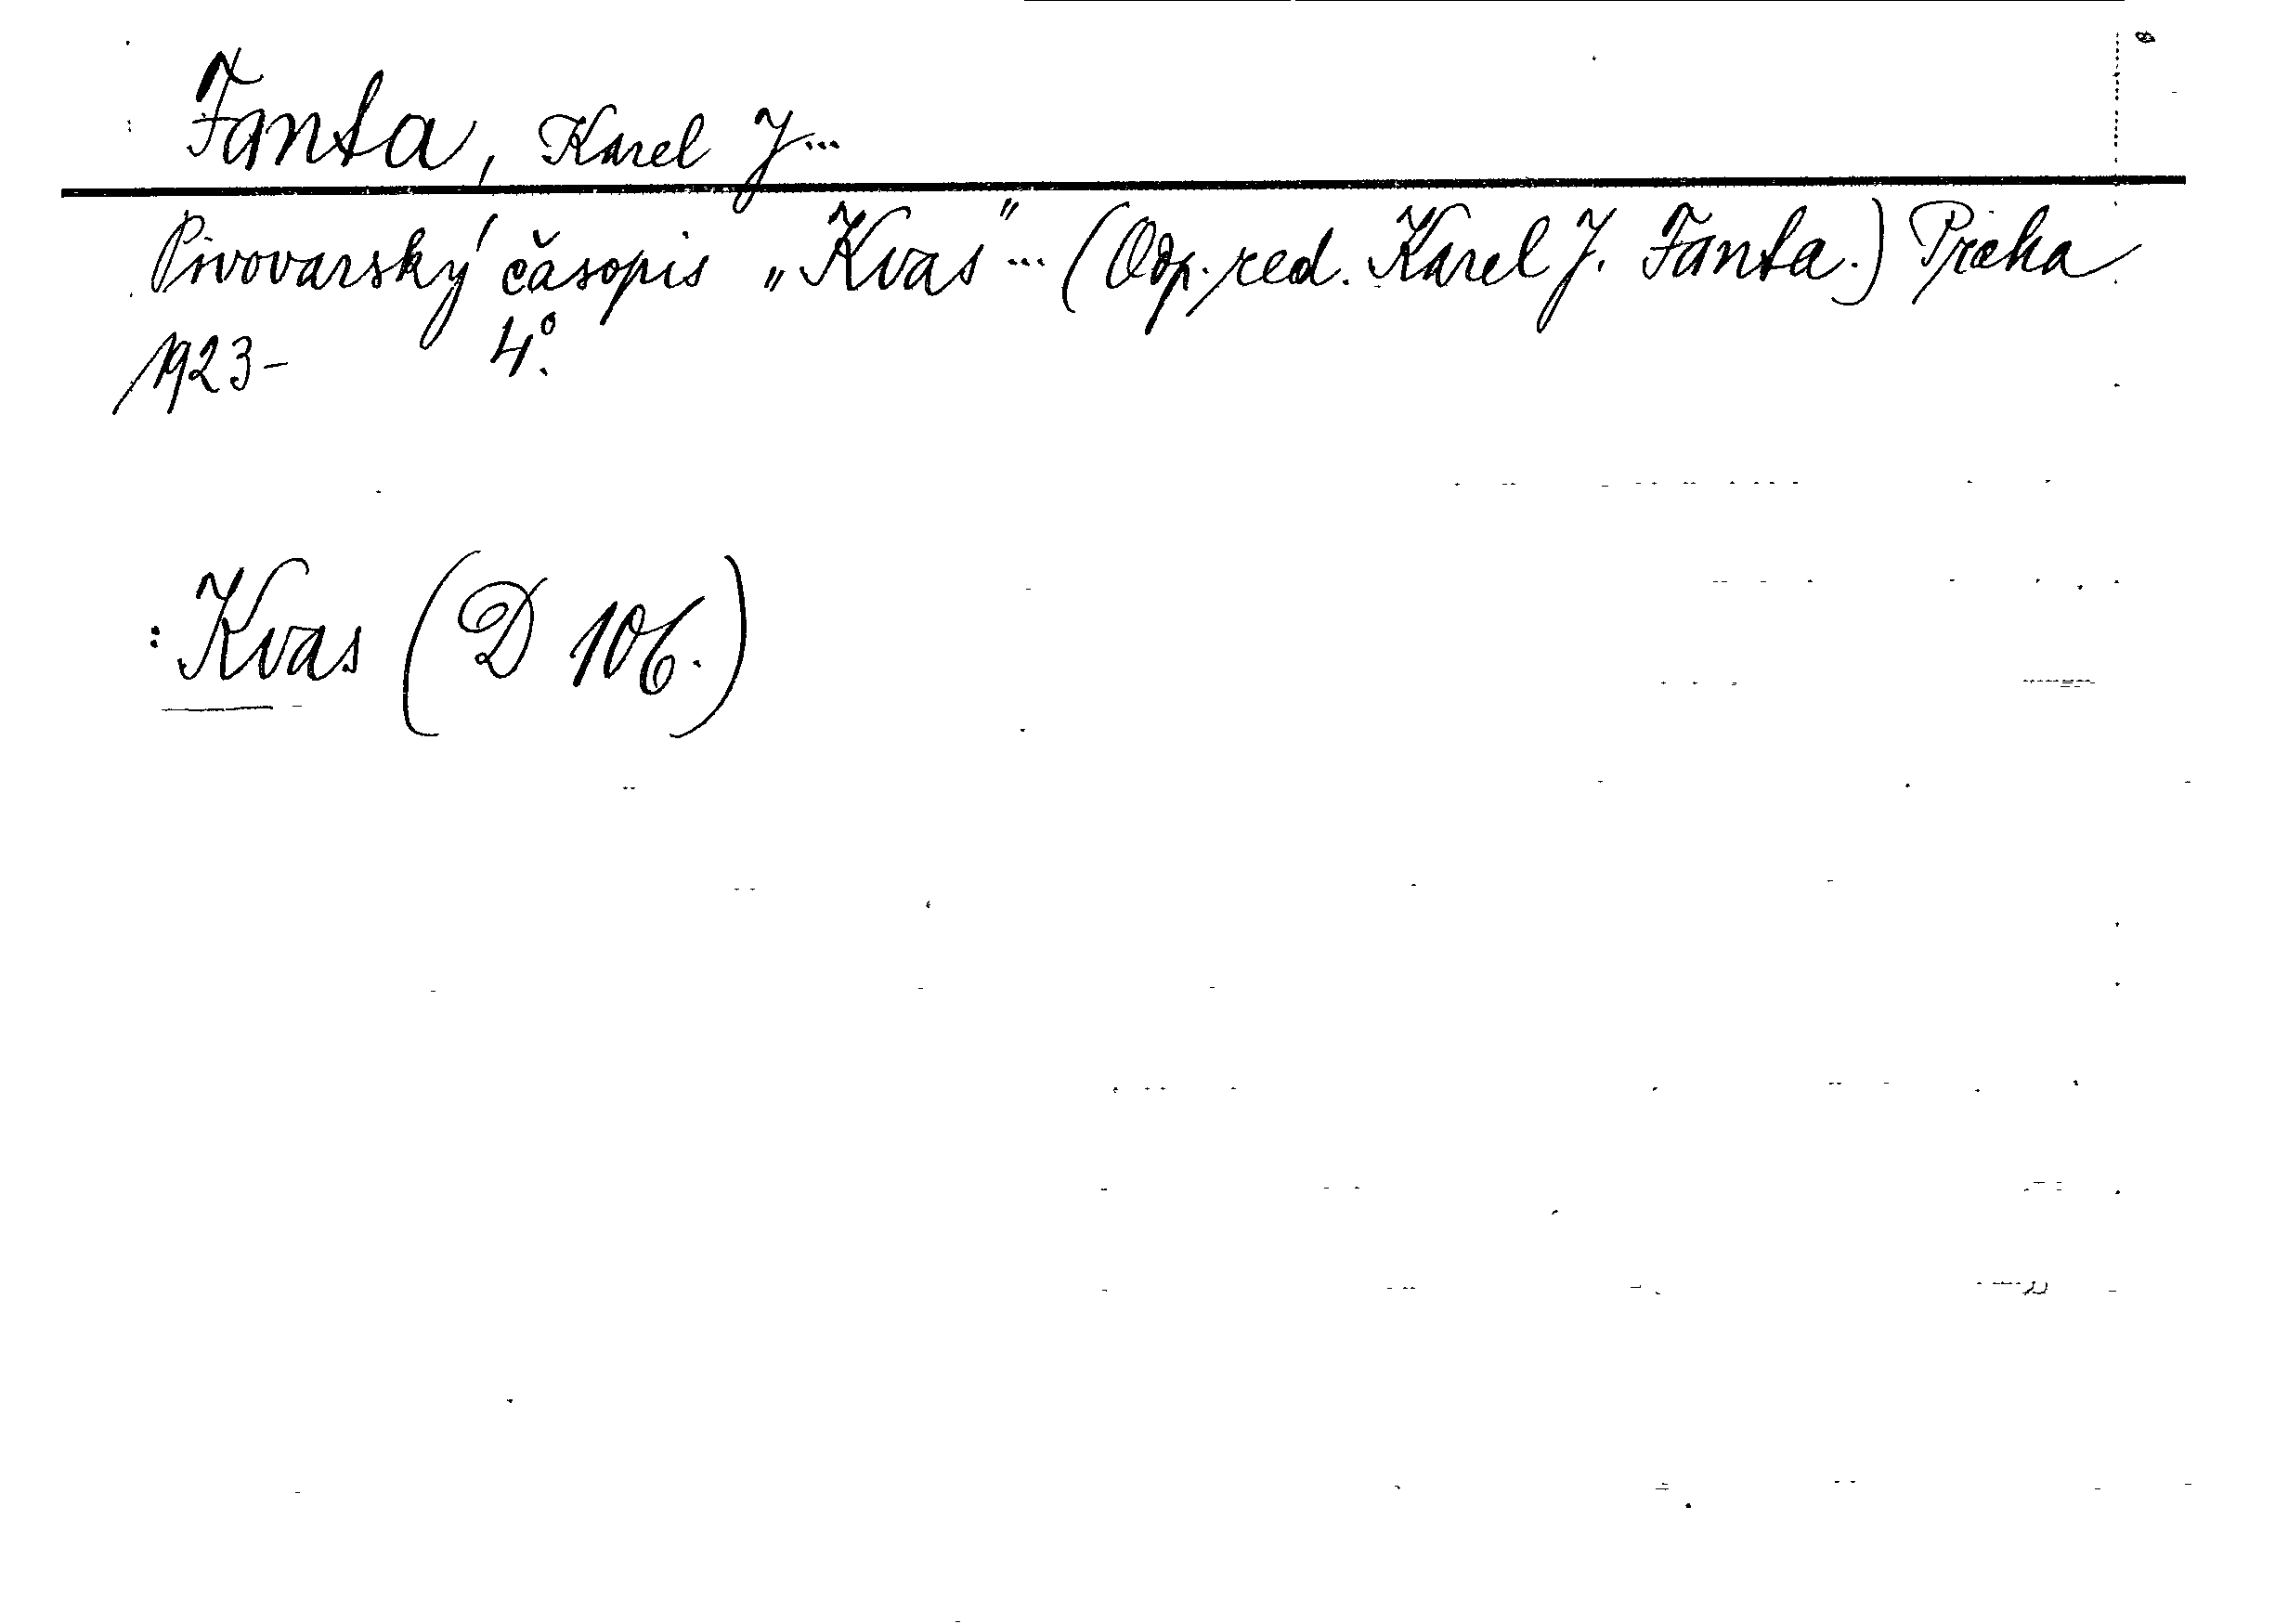 Fanta, Karel J...
Pivovarský časopis „Kvas“... (Odp. red. Karel J. Fanta.) Praha
1923- 4°.
: Kvas (D 106.)